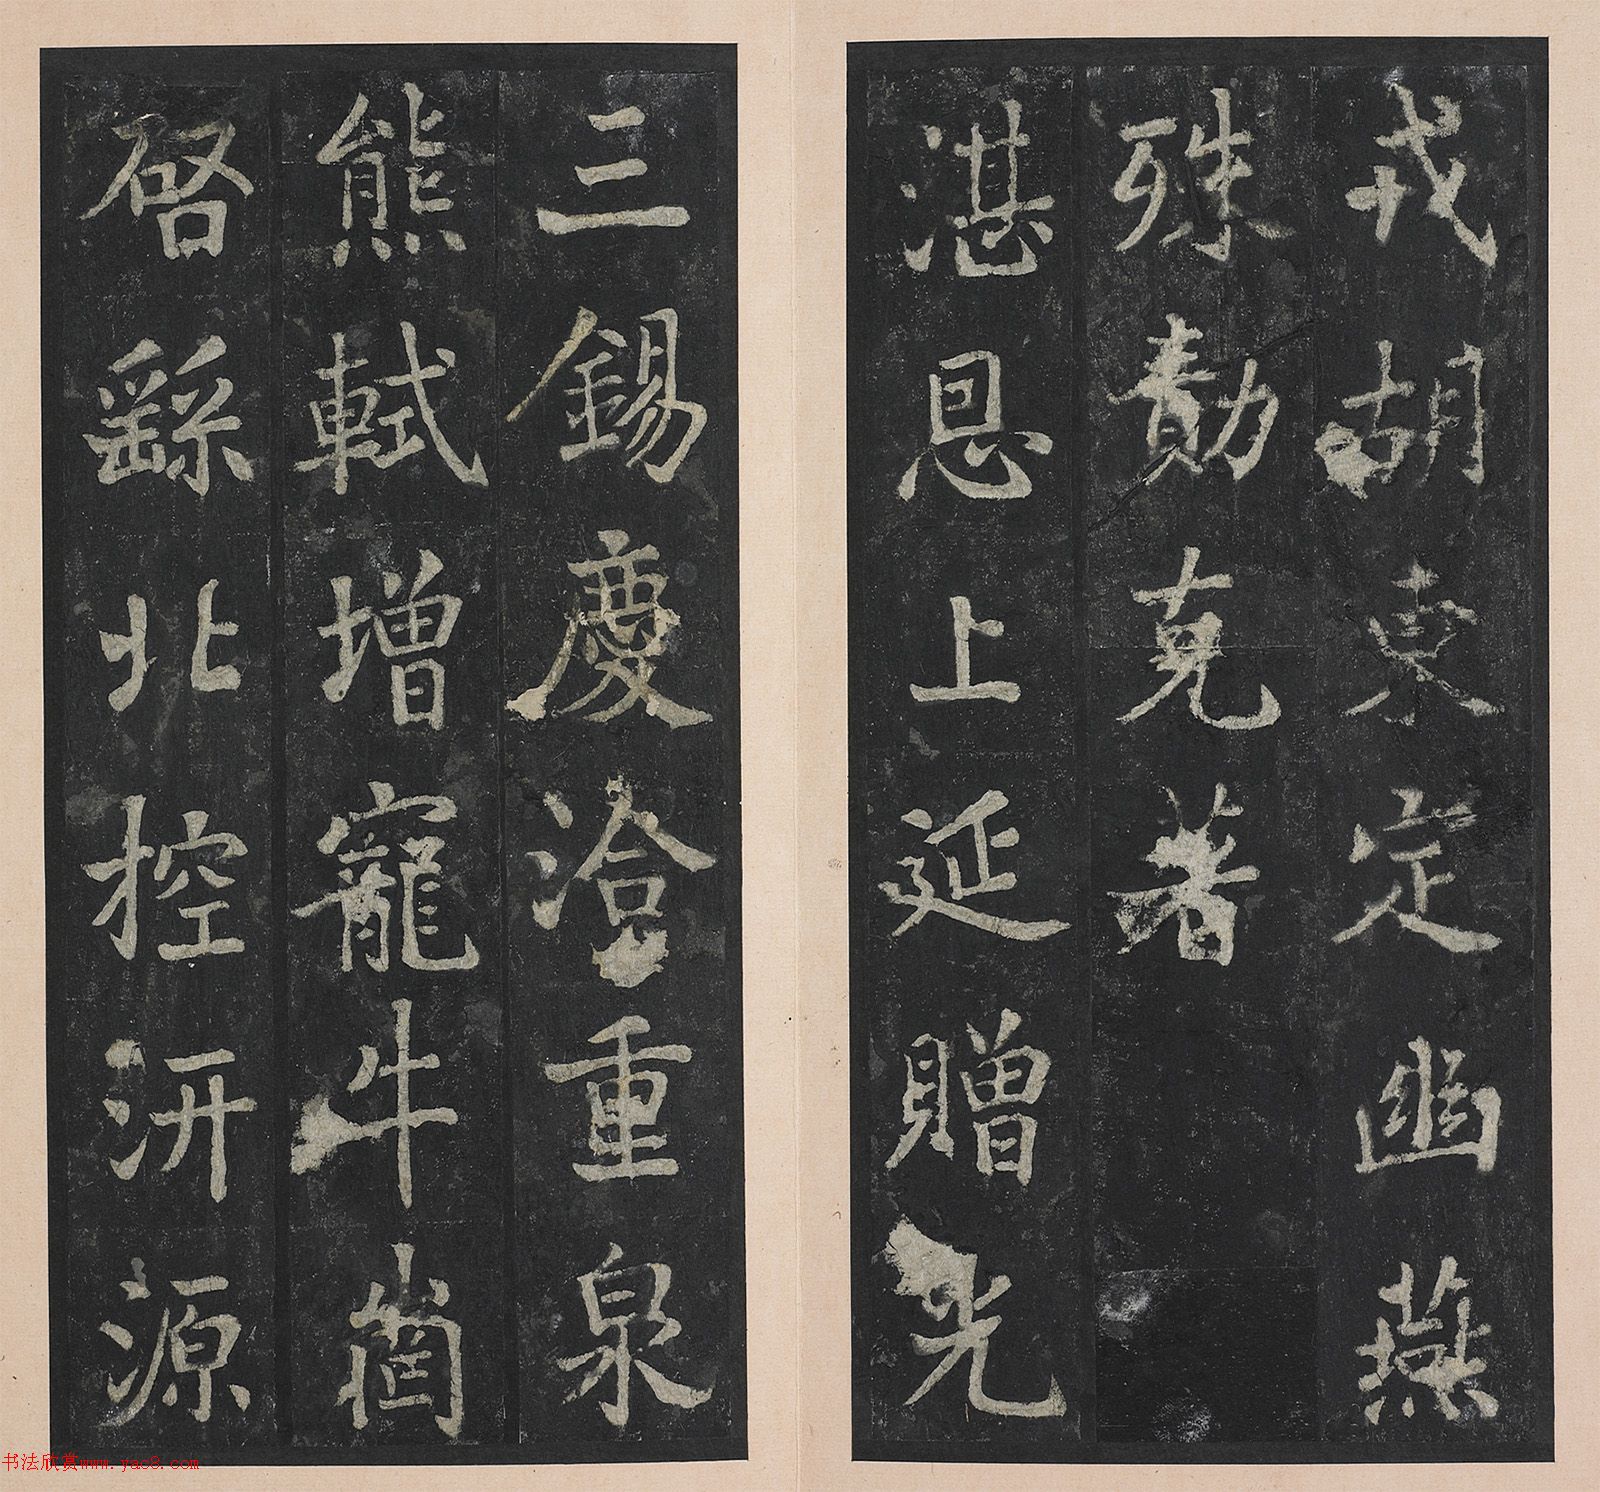 戎胡東定幽燕
殊勲克著
湛恩上延贈光
三錫慶洽重泉
熊軾增寵牛崗
啓繇北控汧源
书法欣赏www.yac8.com